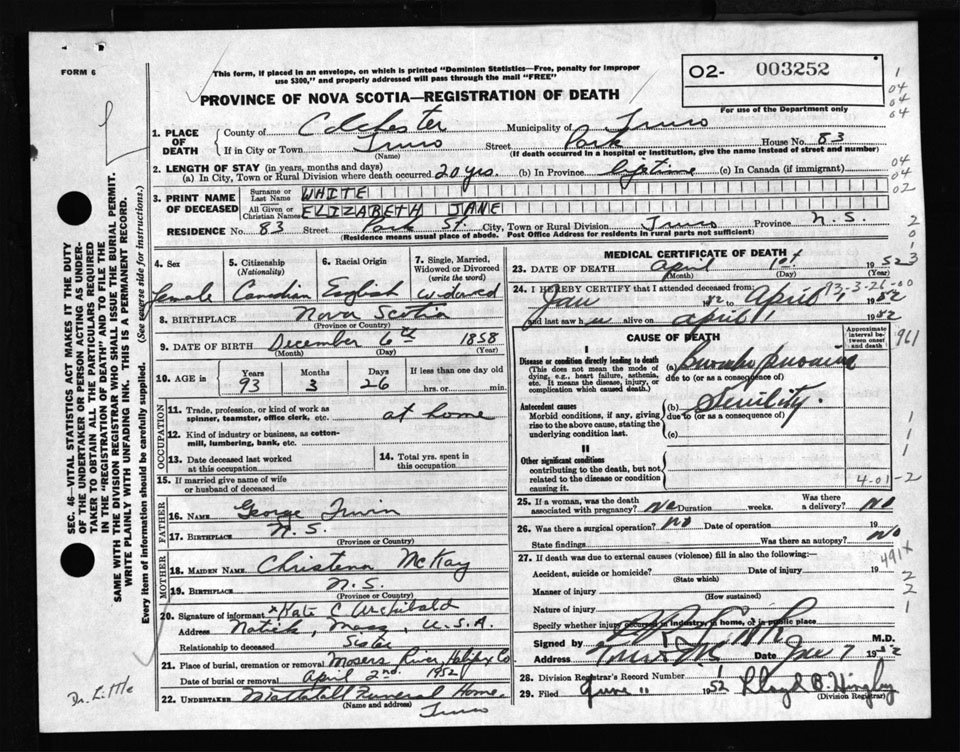 FORM 6
This form, if placed in an envelope, on which is printed "Dominion Statistics—Free, penalty for improper
use $300," and properly addressed will pass through the mail "FREE"
O2- 003252
For use of the Department only
PROVINCE OF NOVA SCOTIA—REGISTRATION OF DEATH
1. PLACE OF DEATH
County of Colchester Municipality of Truro
If in City or Town Truro Street Park House No. 83
(Name) (If death occurred in a hospital or institution, give the name instead of street and number)
2. LENGTH OF STAY (in years, months and days)
(a) In City, Town or Rural Division where death occurred 20 yrs. (b) In Province lifetime (c) In Canada (if immigrant)
3. PRINT NAME OF DECEASED
Surname or Last Name WHITE
All Given or Christian Names ELIZABETH JANE
RESIDENCE No. 83 Street Park St. City, Town or Rural Division Truro Province N.S.
(Residence means usual place of abode. Post Office Address for residents in rural parts not sufficient)
4. Sex
Female
5. Citizenship (Nationality)
Canadian
6. Racial Origin
English
7. Single, Married, Widowed or Divorced (write the word)
widowed
8. BIRTHPLACE Nova Scotia
(Province or Country)
9. DATE OF BIRTH December 6th 1858
(Month) (Day) (Year)
10. AGE in Years Months Days If less than one day old
93 3 26 hrs. or min.
OCCUPATION
11. Trade, profession, or kind of work as spinner, teamster, office clerk, etc. at home
12. Kind of industry or business, as cotton-mill, lumbering, bank, etc.
13. Date deceased last worked at this occupation
14. Total yrs. spent in this occupation
15. If married give name of wife or husband of deceased
FATHER
16. NAME George Irwin
17. BIRTHPLACE N.S.
(Province or Country)
MOTHER
18. MAIDEN NAME Christena McKay
19. BIRTHPLACE N.S.
(Province or Country)
20. Signature of informant x Kate C Archibald
Address Natick, Mass, U.S.A.
Relationship to deceased Sister
21. Place of burial, cremation or removal Mosers River, Halifax Co
Date of burial or removal April 2nd. 1952
22. UNDERTAKER Funeral Home
(Name and address) Truro
MEDICAL CERTIFICATE OF DEATH
23. DATE OF DEATH April 1st 1952
(Month) (Day) (Year)
24. I HEREBY CERTIFY that I attended deceased from:
Jan 52 to April 1952
93-3-26-00
and last saw h er alive on April 1 1952
CAUSE OF DEATH
Approximate interval between onset and death
I
Disease or condition directly leading to death
(This does not mean the mode of dying, e.g., heart failure, asthenia, etc. It means the disease, injury, or complication which caused death.)
(a) Broncho pneumonia
due to (or as a consequence of)
Antecedent causes
Morbid conditions, if any, giving rise to the above cause, stating the underlying condition last.
(b) Senility.
due to (or as a consequence of)
(c)
II
Other significant conditions
contributing to the death, but not related to the disease or condition causing it.
4-01-2
25. If a woman, was the death associated with pregnancy? No Duration weeks. Was there a delivery? No
26. Was there a surgical operation? No Date of operation 19
State findings Was there an autopsy? No
27. If death was due to external causes (violence) fill in also the following:—
491x
Accident, suicide or homicide? Date of injury 19
(State which)
Manner of injury
(How sustained)
Nature of injury
Specify whether injury occurred in industry, in home, or in public place
Signed by M.D.
Address Truro NS Date 7 1952
28. Division Registrar's Record Number
29. Filed June 11 1952
(Division Registrar)
SEC. 46—VITAL STATISTICS ACT MAKES IT THE DUTY
OF THE UNDERTAKER OR PERSON ACTING AS UNDER-
TAKER TO OBTAIN ALL THE PARTICULARS REQUIRED
IN THE "REGISTRATION OF DEATH" AND TO FILE THE
SAME WITH THE DIVISION REGISTRAR WHO SHALL ISSUE THE BURIAL PERMIT.
WRITE PLAINLY WITH UNFADING INK. THIS IS A PERMANENT RECORD.
Every item of information should be carefully supplied. (See reverse side for instructions.)
Dr. Little
1
04
04
04
04
04
02
2
0
1
3
961
1
1
1
2
2
1